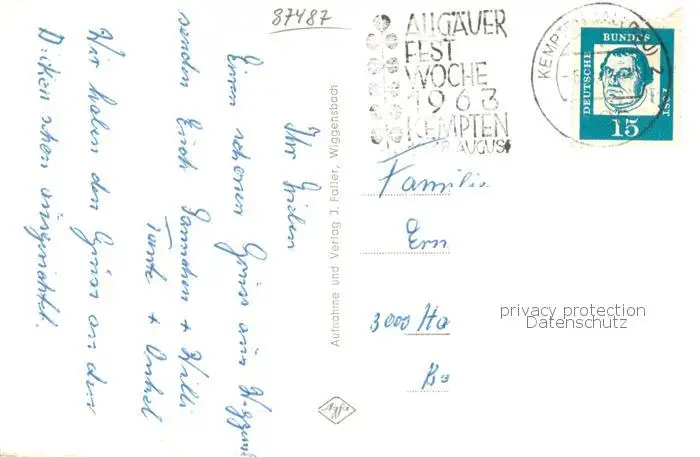 87487
Ihr Lieben
Einen schönen Gruss aus
senden Euch Tannchen + Willi
Tante + Onkel
Wir haben den Gruss an den
Dicken schon ausgerichtet.
Aufnahme und Verlag J. Faller, Wiggensbach
ALLGÄUER
FEST
WOCHE
1963
KEMPTEN
AUGUST
KEMPTEN
DEUTSCHE BUNDESPOST
15
Familie
Ern
3000 Ha
privacy protection
Datenschutz